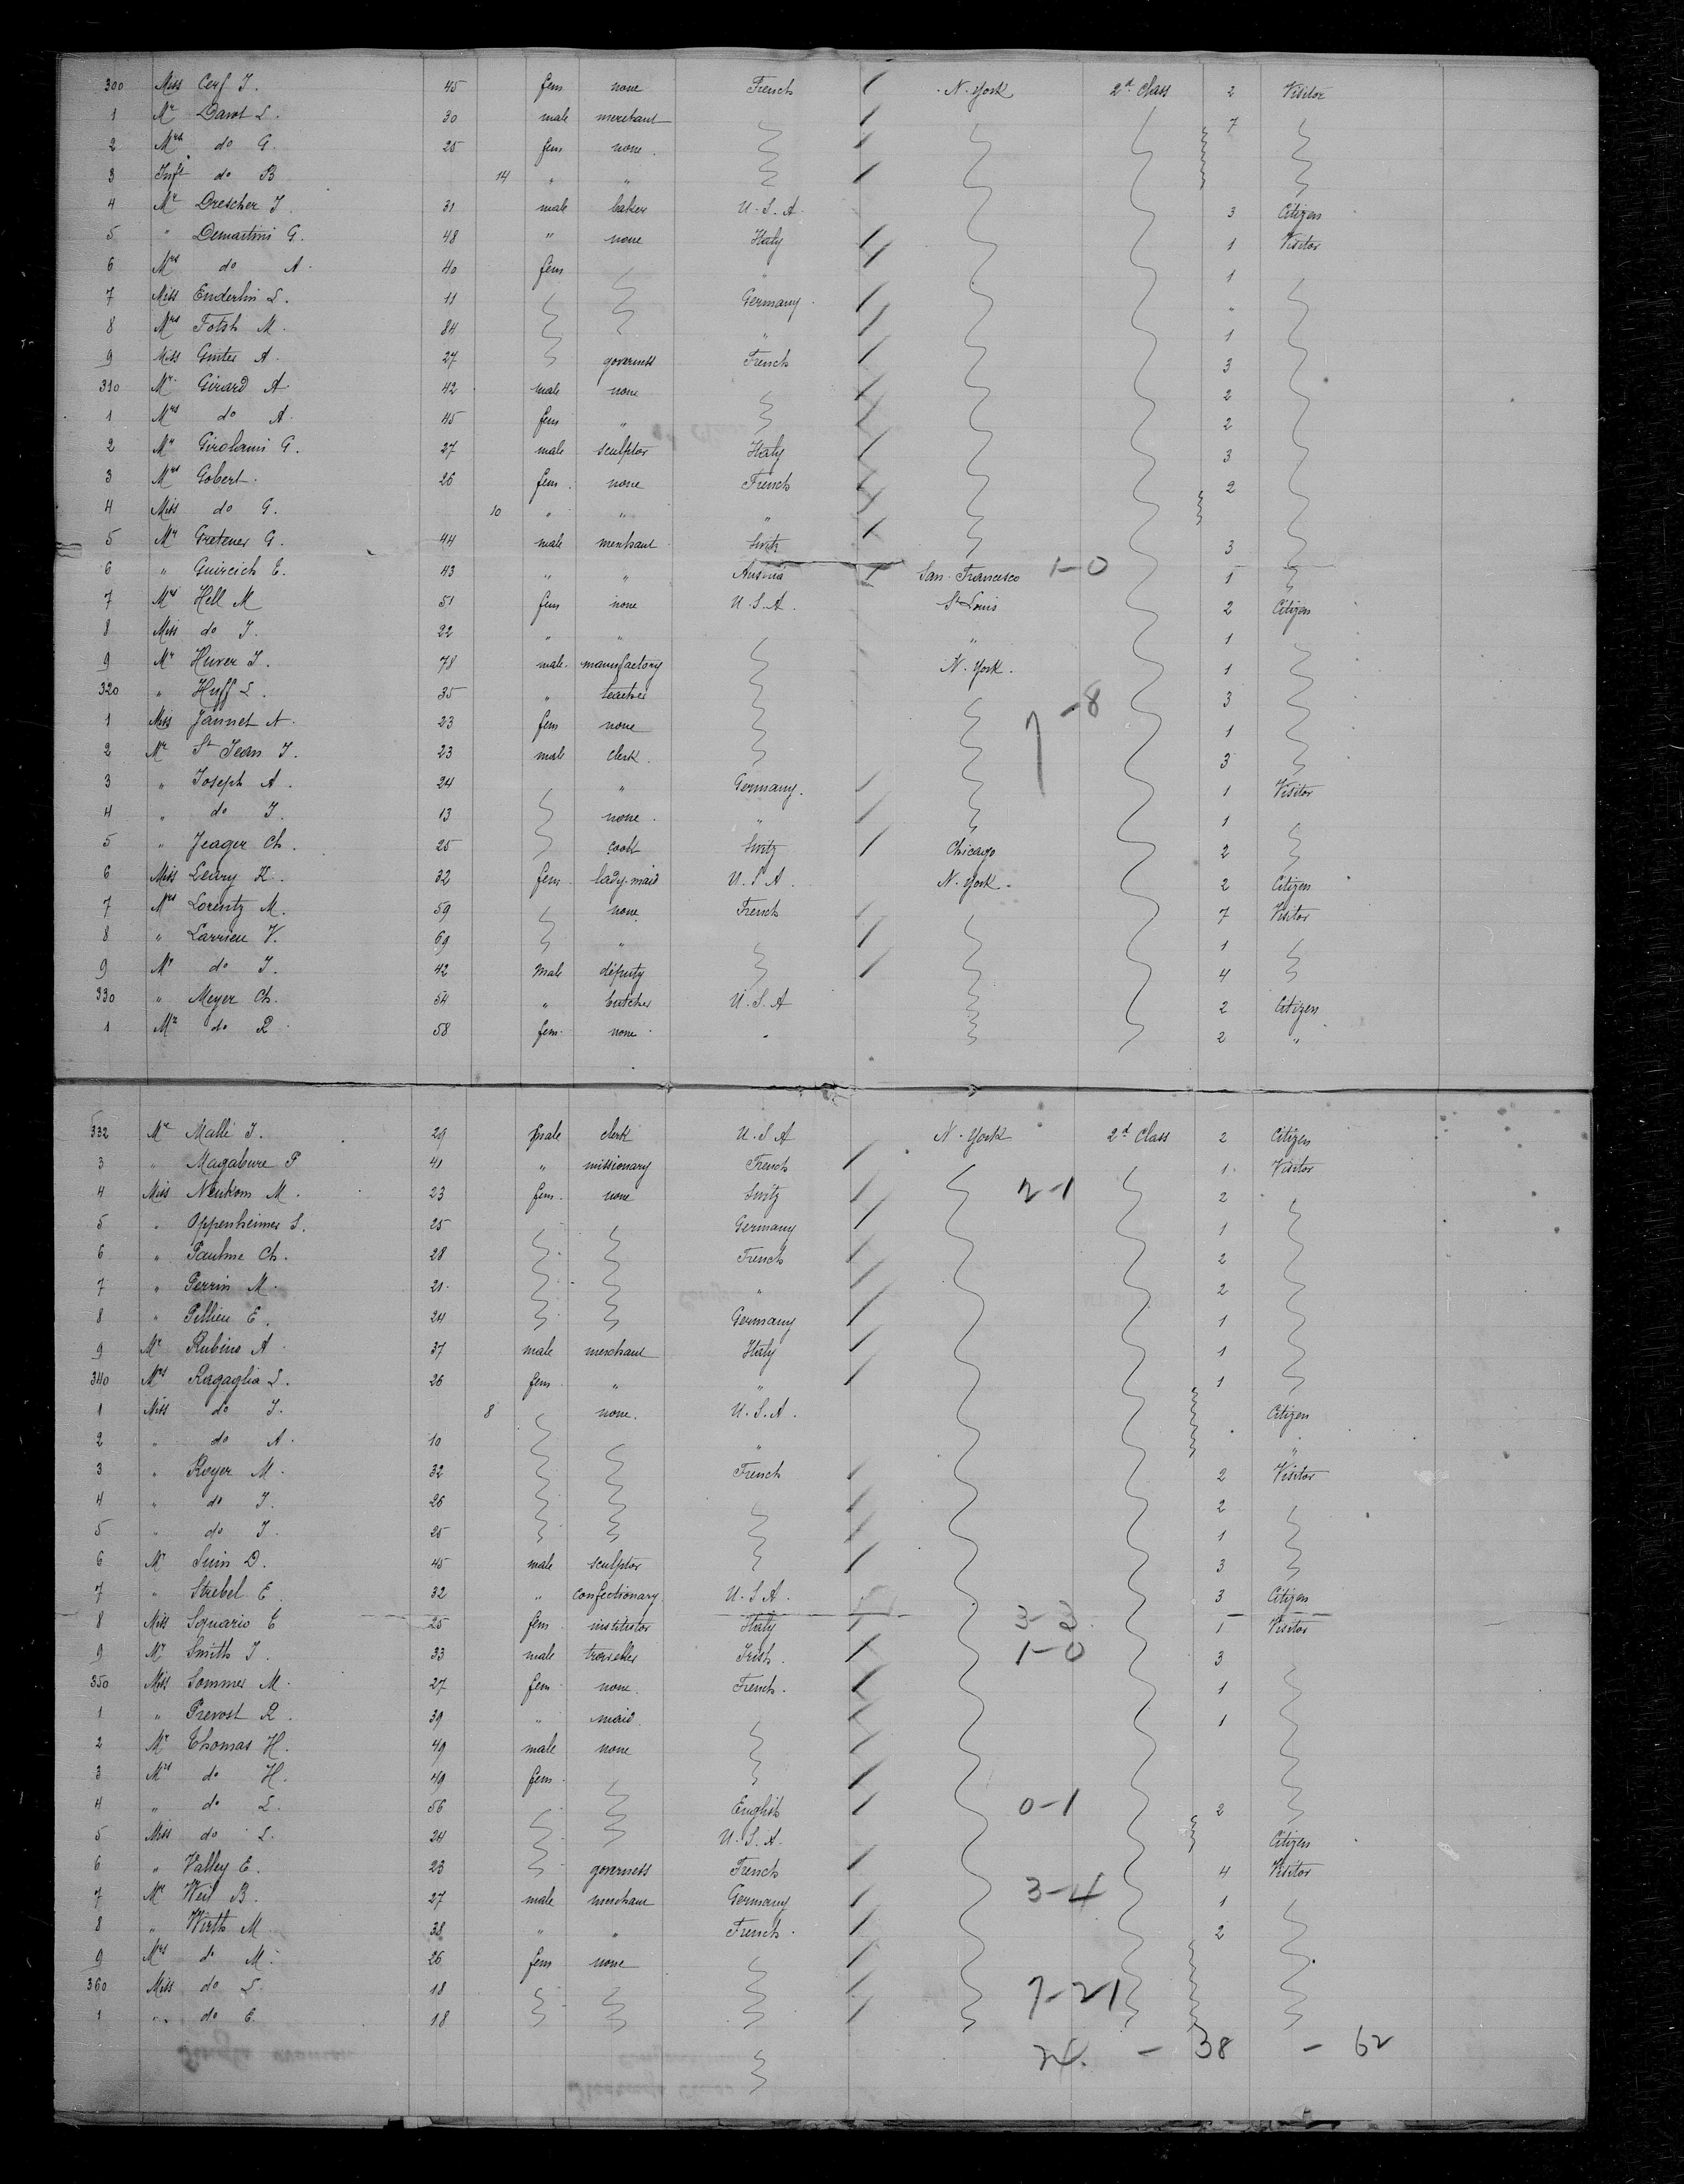 300 Miss Cerf J. 45 fem none French N. York 2d Class 2 Visitor
1 Mr Darot L. 30 male merchant 7
2 Mrs do G. 25 fem none
3 Inft do B 14 " "
4 Mr Drescher J. 31 male baker U.S.A. 3 Citizen
5 " Demartini G. 48 " none Italy 1 Visitor
6 Mrs do A. 40 fem " 1
7 Miss Enderlin L. 11 Germany "
8 Mrs Fotsh M. 84 " 1
9 Miss Ginter A. 27 governess French 3
310 Mr Girard A. 42 male none 2
1 Mrs do A. 45 fem " 2
2 Mr Girolami G. 27 male sculptor Italy 3
3 Mrs Gobert. 26 fem none French 2
4 Miss do G. 10 " " "
5 Mr Gretener G. 44 male merchant Switz 3
6 " Guircich E. 43 " " Austria San Francesco 1-0 1
7 Mrs Hell M 51 fem none U.S.A. St Louis 2 Citizen
8 Miss do J. 22 " " " 1
9 Mr Hurer J. 78 male manufactory N. York. 1
320 " Huff L. 35 " teacher -8 3
1 Miss Jannet A. 23 fem none 7 1
2 Mr St Jean J. 23 male clerk. 3
3 " Joseph A. 24 " Germany. 1 Visitor
4 " do J. 13 none. " 1
5 " Jeager Ch. 25 cook Switz Chicago 2
6 Miss Leary K. 32 fem lady-maid U.S.A. N. York. 2 Citizen
7 Mrs Lorentz M. 59 none. French 7 Visitor
8 " Larrieu V. 69 " 1
9 Mr do J. 42 male députy 4
330 " Meyer Ch. 54 " butcher U.S.A 2 Citizen
1 Mrs do R. 58 fem. none. 2 "
332 Mr Malli J. 29 male clerk U.S.A N. York 2d Class 2 Citizen
3 " Magabure P 41 " missionary French 1. Visitor
4 Miss Neukom M. 23 fem. none Switz 2-1 2
5 " Oppenheimer S. 25 Germany 1
6 " Pauline Ch. 28 French 2
7 " Perrin M. 21 " 2
8 " Pillieu E. 24 Germany 1
9 Mr Rubino A 37 male merchant Italy 1
340 Mrs Ragaglia L. 26 fem " " 1
1 Miss do J. 8 none. U.S.A. Citizen
2 " do A. 10 " "
3 " Royer M. 32 French 2 Visitor
4 " do J. 26 2
5 " do J. 25 1
6 Mr Suin D. 45 male sculptor 3
7 " Strebel E 32 " Confectionary U.S.A. 3 Citizen
8 Miss Squario E 25 fem. institutor Italy 3-3 1 Visitor
9 Mr Smith J. 33 male traveller Irish. 1-0 3
350 Miss Sommer M. 27 fem none. French. 1
1 " Prevost R. 39 " maid 1
2 Mr Thomas H. 49 male none
3 Mrs do H. 49 fem.
4 " do L. 56 English 0-1 2
5 Miss do L. 24 U.S.A. Citizen
6 " Valley E. 23 governess French 4 Visitor
7 Mr Weil B. 27 male merchant Germany 3-4 1
8 " Wirth M 38 " " French. 2
9 Mrs do M. 26 fem none
360 Miss do L. 18 7-21
1 " do E. 18
24. - 38 - 62